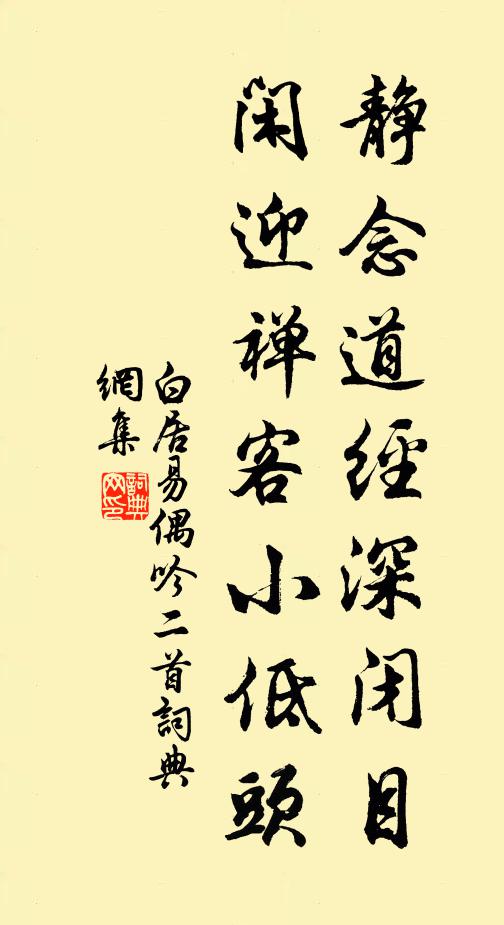 静念道經深闭目
闲迎禅客小低頭
白居易偶吟二首詞典
網集
詞典
网印